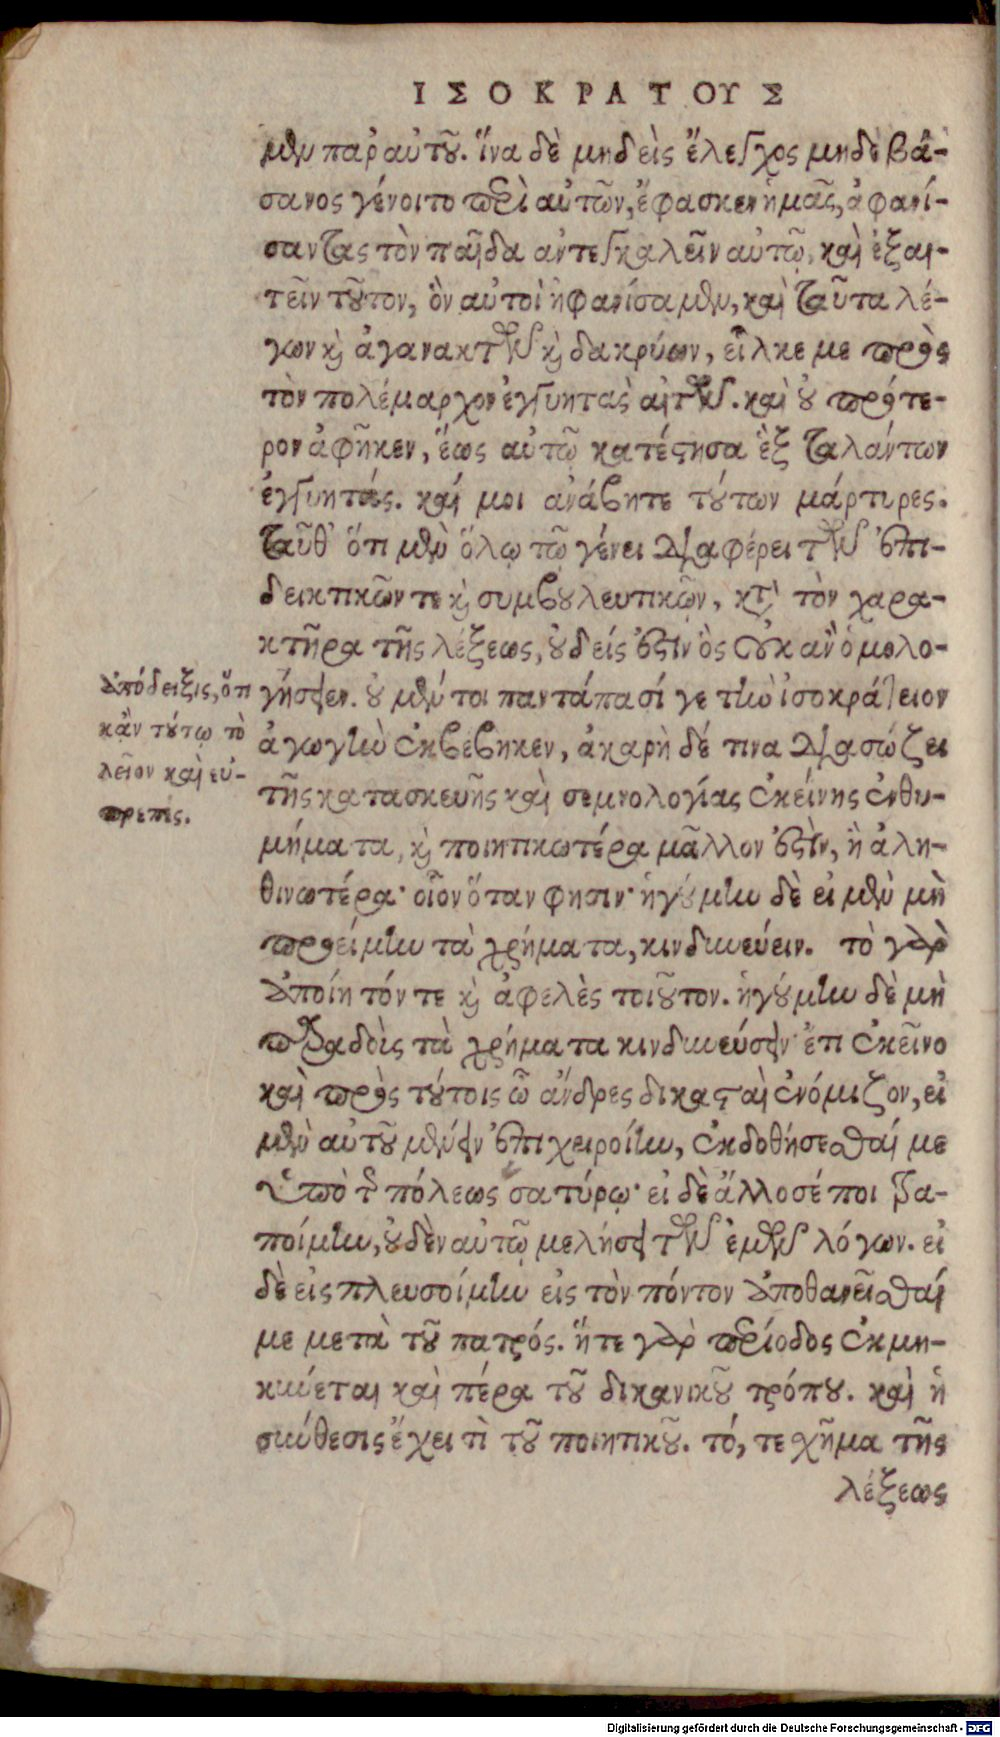 ΙΣΟΚΡΑΤΟΥΣ
μὴν παρ' αὐτοῦ. ἵνα δὲ μηδεὶς ἔλεγχος μηδὲ βά-
σανος γένοιτο περὶ αὐτῶν, ἔφασκεν ἡμᾶς, ἀφανί-
σαντας τὸν παῖδα ἀντεγκαλεῖν αὐτῷ, καὶ ἐξαι-
τεῖν τοῦτον, ὃν αὐτοὶ ἠφανίσαμεν, καὶ ταῦτα λέ-
γων καὶ ἀγανακτῶν καὶ δακρύων, εἷλκε με πρὸς
τὸν πολέμαρχον ἐγγυητὰς αἰτῶν. καὶ οὐ πρότε-
ρον ἀφῆκεν, ἕως αὐτῷ κατέστησα ἓξ ταλάντων
ἐγγυητάς. καί μοι ἀνάβητε τούτων μάρτυρες.
Ταῦθ' ὅτι μὲν ὅλῳ τῷ γένει διαφέρει τῶν ἐπι-
δεικτικῶν τε καὶ συμβουλευτικῶν, κατὰ τὸν χαρα-
κτῆρα τῆς λέξεως, οὐδείς ἐστιν ὃς οὐκ ἂν ὁμολο-
γήσειεν. οὐ μέν τοι παντάπασί γε τὴν ἰσοκράτειον
ἀγωγὴν ἐκβέβηκεν, ἀκαρῆ δέ τινα διασώζει
τῆς κατασκευῆς καὶ σεμνολογίας ἐκείνης ἐνθυ-
μήματα, καὶ ποιητικωτέρα μᾶλλον ἐστὶν, ἢ ἀλη-
θινωτέρα· οἷον ὅταν φησιν· ἡγούμην δὲ εἰ μὲν μὴ
προείμην τὰ χρήματα, κινδυνεύειν. τὸ γὰρ
ἀποίητόν τε καὶ ἀφελὲς τοιοῦτον. ἡγούμην δὲ μὴ
παραδοὶς τὰ χρήματα κινδυνεύσειν· ἔτι ἐκεῖνο
καὶ πρὸς τούτοις ὦ ἄνδρες δικασταὶ ἐνόμιζον, εἰ
μὲν αὐτοῦ μένειν ἐπιχειροίην, ἐκδοθήσεσθαί με
ὑπὸ τῆς πόλεως σατύρῳ· εἰ δὲ ἄλλοσέ ποι τρα-
ποίμην, οὐδὲν αὐτῷ μελήσειν τῶν ἐμῶν λόγων. εἰ
δὲ εἰς πλευσοίμην εἰς τὸν πόντον ἀποθανεῖσθαί
με μετὰ τοῦ πατρός. ἥ τε γὰρ περίοδος ἐκμη-
κύνεται καὶ πέρα τοῦ δικανικοῦ τρόπου. καὶ ἡ
σύνθεσις ἔχει τὶ τοῦ ποιητικοῦ. τό, τε χῆμα τῆς
λέξεως
Ἀπόδειξις, ὅτι
κἀν τούτῳ τὸ
λεῖον καὶ εὐ-
πρεπές.
Digitalisierung gefördert durch die Deutsche Forschungsgemeinschaft - DFG